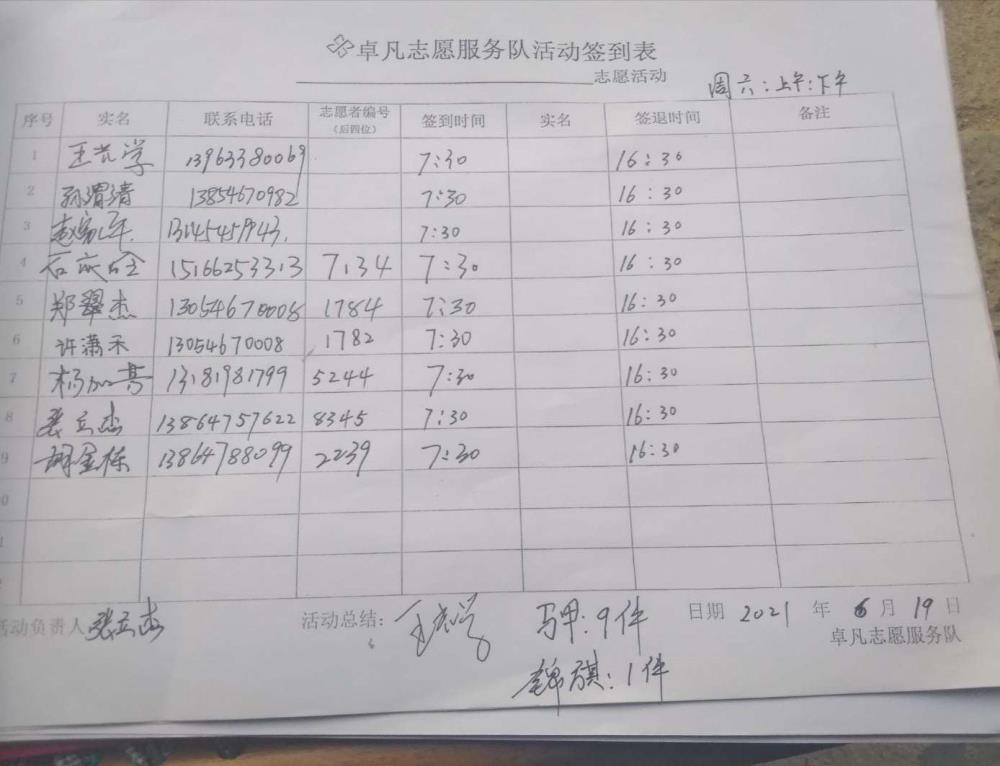 卓凡志愿服务队活动签到表
志愿活动
周六:上午:下午
序号 实名 联系电话 志愿者编号(后四位) 签到时间 实名 签退时间 备注
1 13963380069 7:30 16:30
2 孙渭清 13854670982 7:30 16:30
3 7:30 16:30
4 15166253313 7134 7:30 16:30
5 郑翠杰 13054670008 1784 7:30 16:30
6 许潇禾 13054670008 1782 7:30 16:30
7 13181981799 5244 7:30 16:30
8 张立杰 13864757622 8345 7:30 16:30
9 胡金栋 13864788099 2239 7:30 16:30
0
1
活动负责人 张立杰 活动总结: 马甲:9件 日期 2021 年 6 月 19 日
卓凡志愿服务队
锦旗:1件